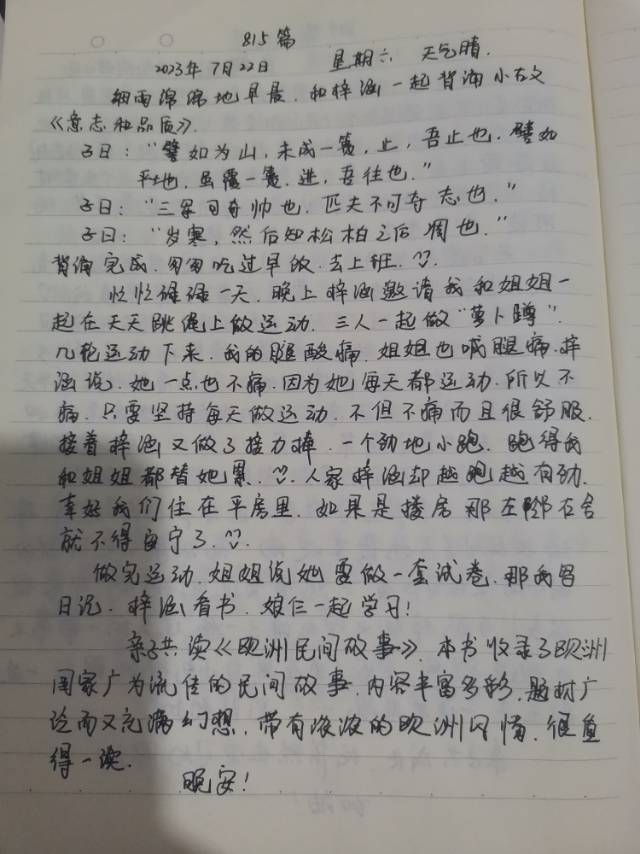 815篇
2023年7月22日 星期六 天气晴.
细雨绵绵地早晨.和梓涵一起背诵小古文
《意志和品质》.
子曰:“譬如为山,未成一篑,止,吾止也.譬如
平地,虽覆一篑.进,吾往也.”
子曰:“三军可夺帅也.匹夫不可夺志也.”
子曰:“岁寒,然后知松柏之后凋也.”
背诵完成.匆匆吃过早饭.去上班.
忙忙碌碌一天.晚上梓涵邀请我和姐姐一
起在天天跳绳上做运动.三人一起做“萝卜蹲”.
几轮运动下来.我的腿酸痛.姐姐也喊腿痛.梓
涵说.她一点也不痛.因为她每天都运动.所以不
痛.只要坚持每天做运动.不但不痛而且很舒服.
接着梓涵又做了接力棒.一个劲地小跑.跑得我
和姐姐都替她累.人家梓涵却越跑越有劲.
幸好我们住在平房里.如果是楼房那左邻右舍
就不得安宁了.
做完运动.姐姐说她要做一套试卷.那我写
日记.梓涵看书.娘仨一起学习!
亲子共读《欧洲民间故事》.本书收录了欧洲
国家广为流传的民间故事.内容丰富多彩.题材广
泛而又充满幻想.带有浓浓的欧洲风情.很值
得一读.
晚安!